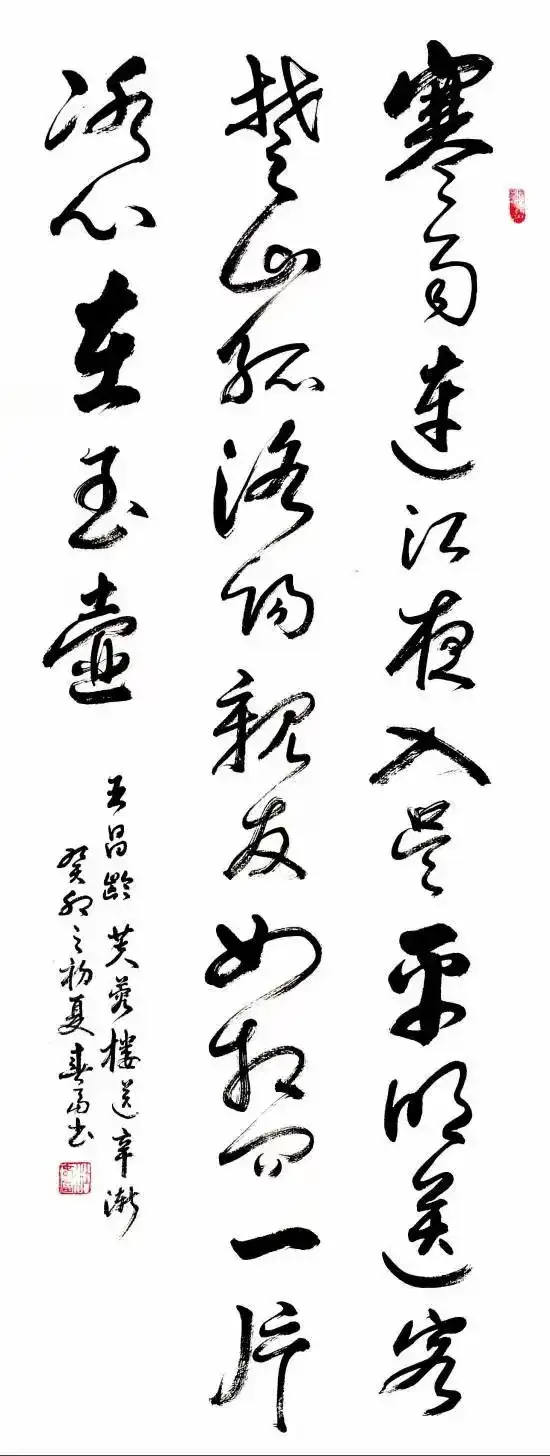 寒雨连江夜入吴平明送客
楚山孤洛阳亲友如相问一片
冰心在玉壶
王昌龄芙蓉楼送辛渐
癸卯之初夏春雨书